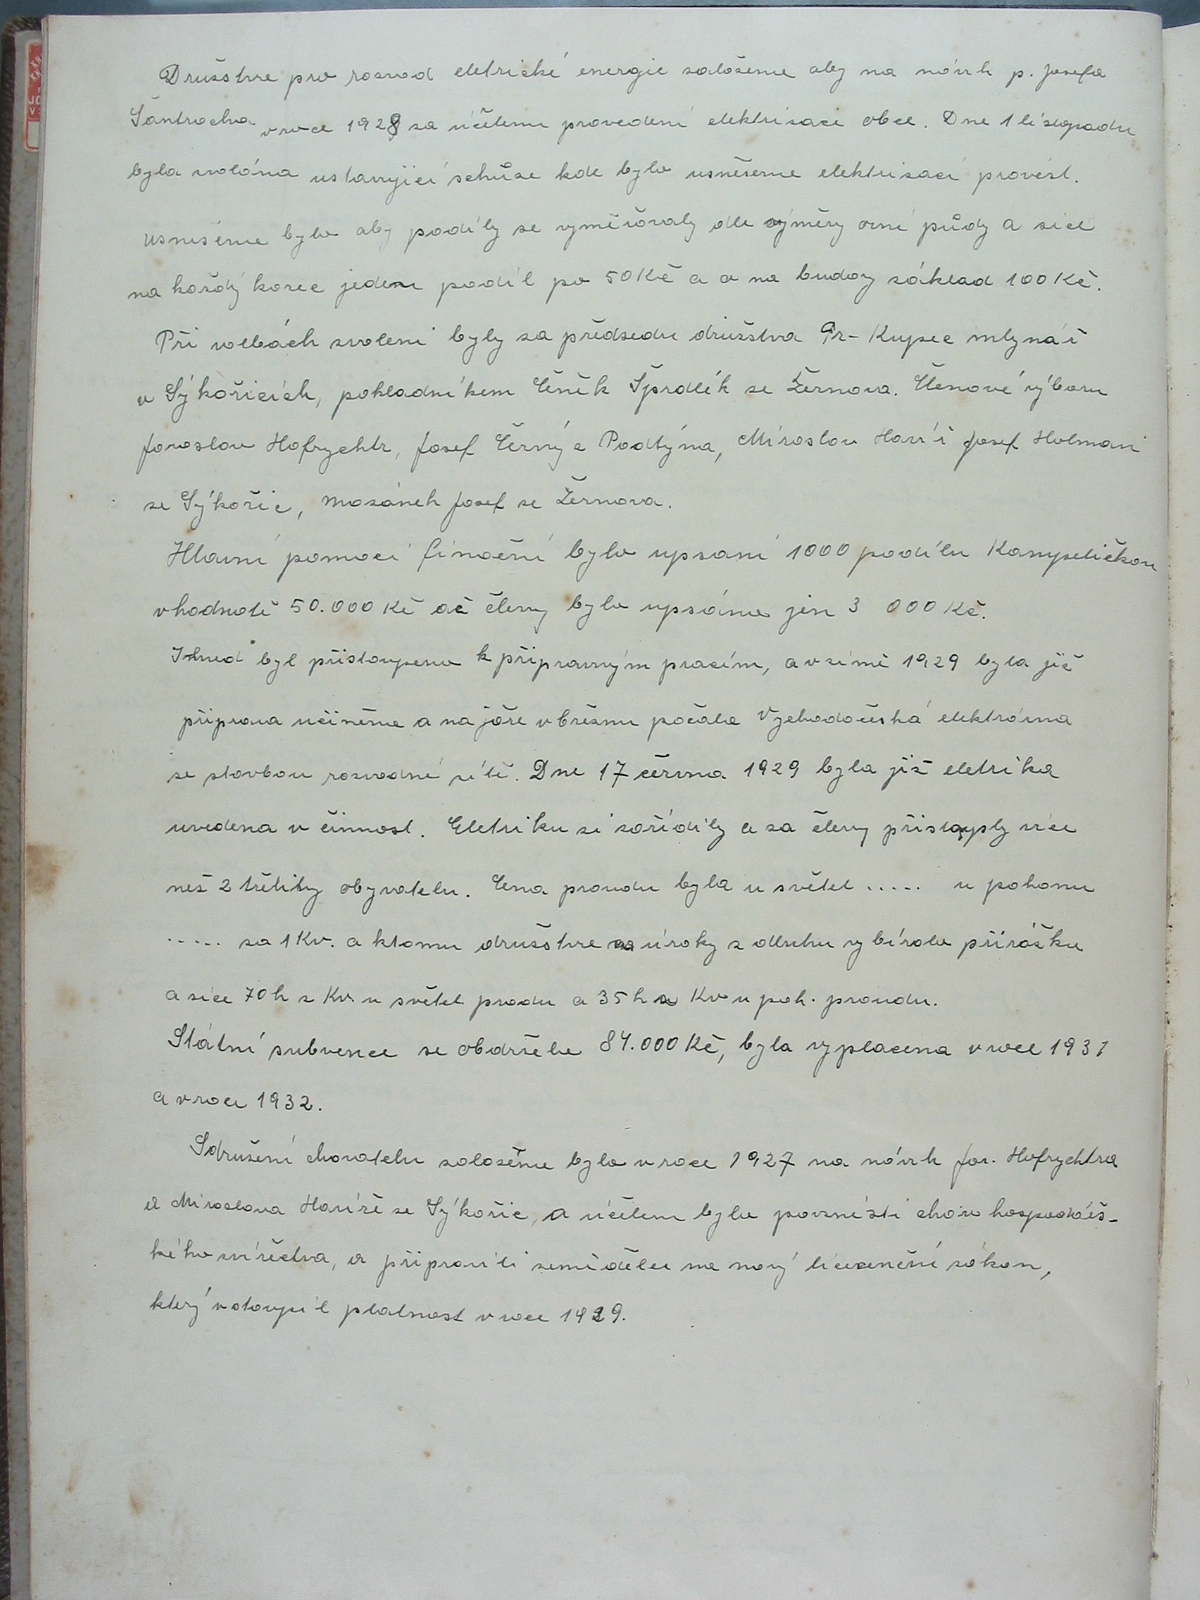 Družstvo pro rozvod eletrické energie založeno aby na návrh p. Josefa
Šantrocha v roce 1928 za účelem provedení elektrisace obce. Dne 1 listopadu
byla svolána ustavující schůze kde bylo usnešeme elektrisaci provést.
usnešeme bylo aby podíly se vyměřovaly dle výměry orné půdy a sice
na každý korec jeden podíl po 50 Kč a a na budovy základ 100 Kč.
Při volbách zvoleni byly za předsedu družstva Fr- Kupec mlynář
v Sýkořicích, pokladníkem Čeněk Šprdlík ze Žernova. Členové výboru
Jaroslav Hofrychtr, Josef Černý z Podtýna, Miroslav Havíř Josef Holman
ze Sýkořic, Mazánek Josef ze Žernova.
Hlavní pomocí finační bylo upsaní 1000 podílu Kampeličkou
v hodnotě 50.000 Kč ač členy bylo upsáno jen 3 000 Kč.
Ihned byl přistoupeno k přípravným pracím, a v zimě 1929 byla již
příprava učiněna a na jaře v březnu počala Východočeská elektrárna
se stavbou rozvodné sítě. Dne 17 června 1929 byla již eletrika
uvedena v činnost. Eletriku si zařídily a za členy přistouply více
než 2 třetiny obyvatelu. Cena proudu byla u světel ..... u pohonu
..... za 1 Kv. a ktomu družstvo na úroky z dluhu vybíralo přírážku
a sice 70 h z Kv. u světel produ a 35 h z Kv u poh. proudu.
Státní subvence se obdrželo 84.000 Kč, byla vyplacena v roce 1931
a v roce 1932.
Sdružení chovatelu založeno bylo v roce 1927 na návrh Jar. Hofrychtra
a Miroslava Havíře ze Sýkořic, a účelem bylo povznésti chov hospodář-
kého zvířectva, a připraviti zemědělce na nový licenční zákon,
který vstoupil platnost v roce 1929.